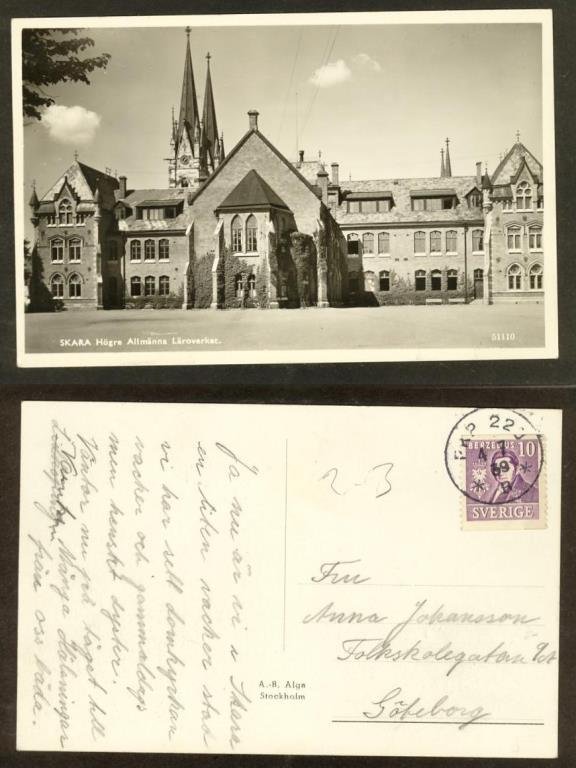 SKARA Högre Allmänna Läroverket.
51110
Ja nu är vi i Skara
en liten vacker stad
vi har sett domkyrkan
vacker och gammaldags
men hemskt dyster.
Väntar nu på tåget till
Många Hälsningar
från oss båda.
A.-B. Alga
Stockholm
2-3
BERZELIUS
10
SVERIGE
Fru
Anna Johansson
Folkskolegatan
Göteborg